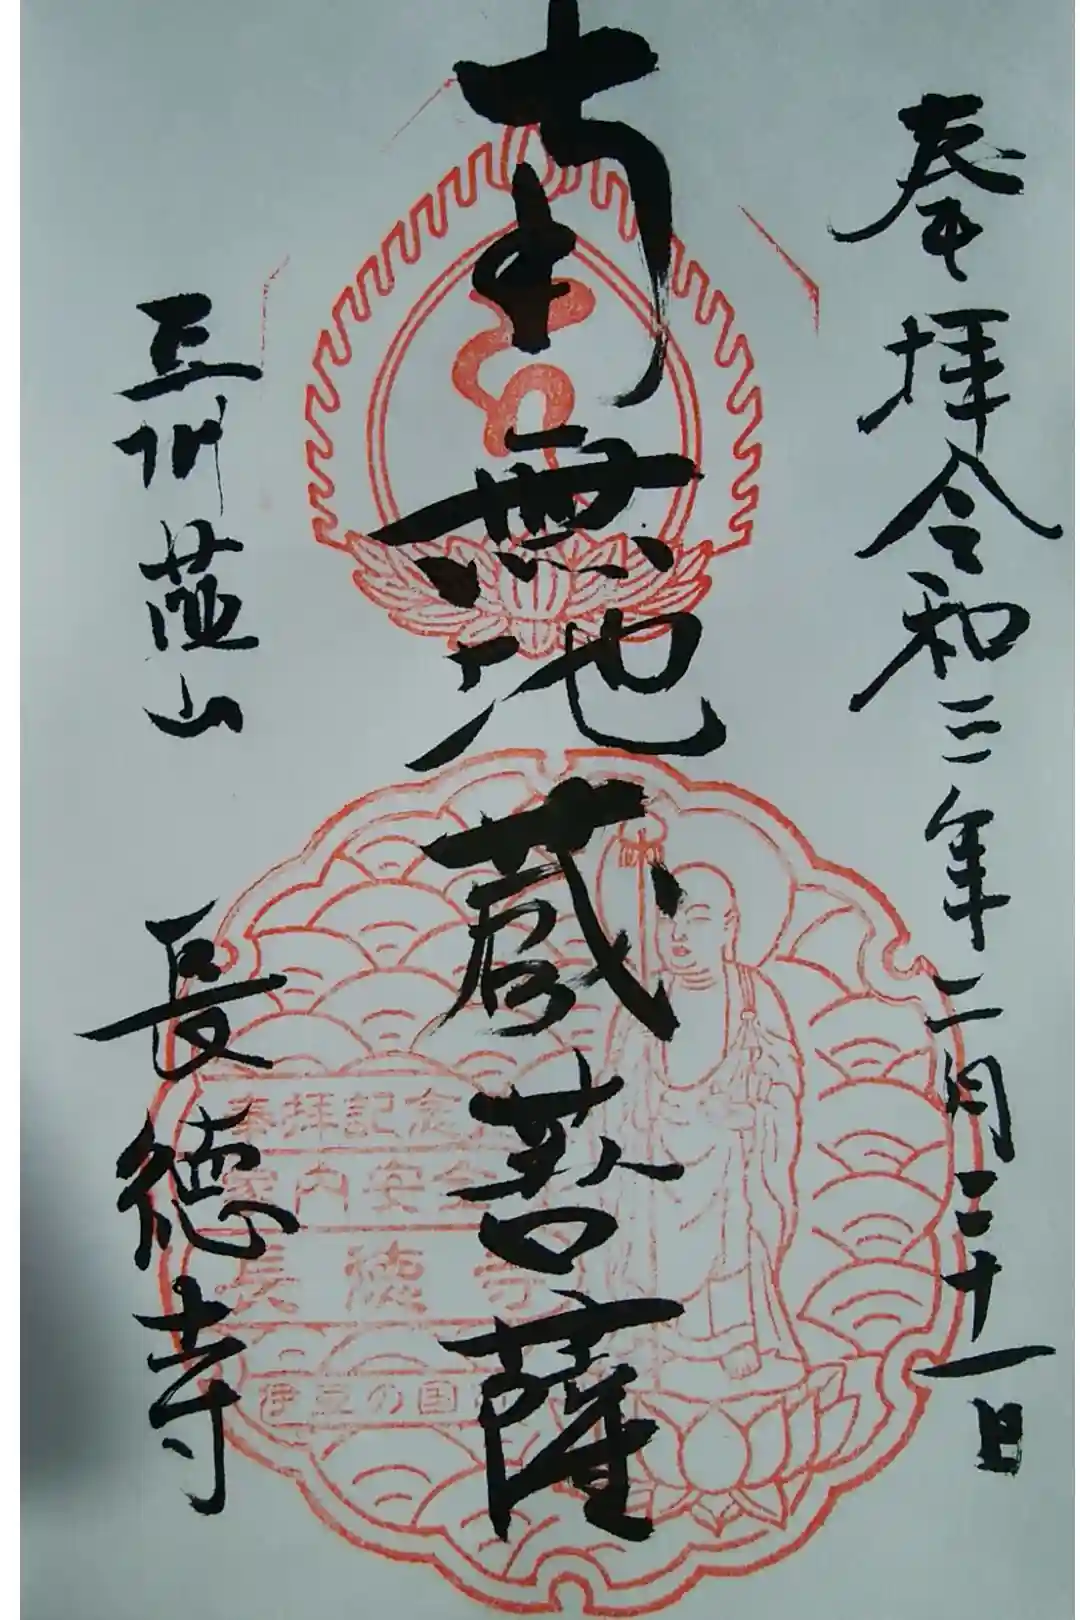 奉拝令和三年二月二十一日
南無地蔵菩薩
豆州韮山
長徳寺
奉拝記念
家内安全
長徳寺
伊豆の国